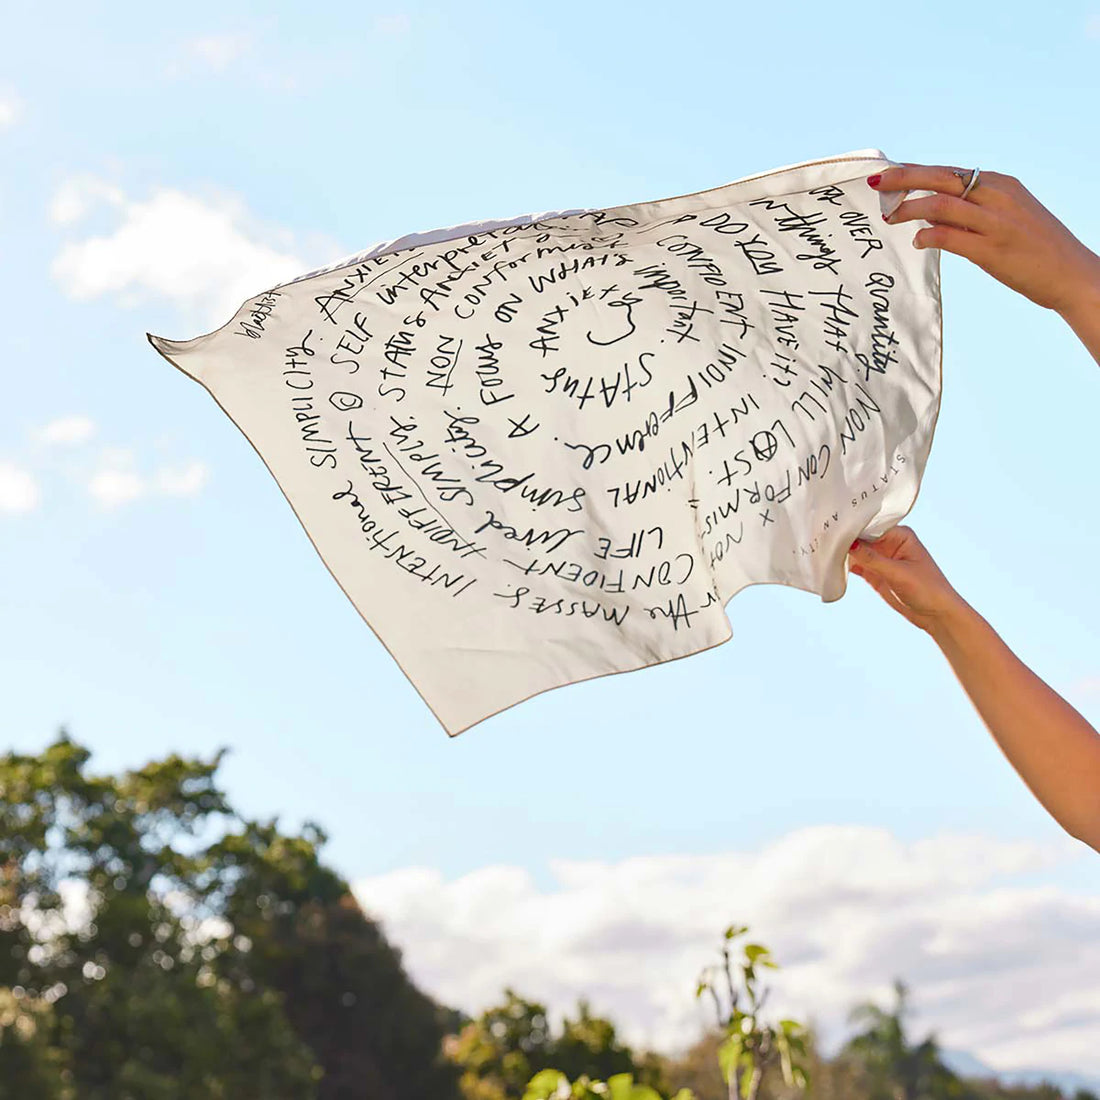 STATUS ANXIETY
A FOCUS ON WHAT'S important.
simplicity. NON CONFORMIST CONFIDENT INDIFFERENCE.
STATUS ANXIETY
DO YOU HAVE IT?
INTENTIONAL LIFE lived SIMPLY.
SELF
IN things THAT WILL LAST.
CONFIDENT INDIFFERENT
INTENTIONAL SIMPLICITY.
OVER QUANTITY
NON CONFORMIST
x NOT
the MASSES.
STATUS ANXIETY.